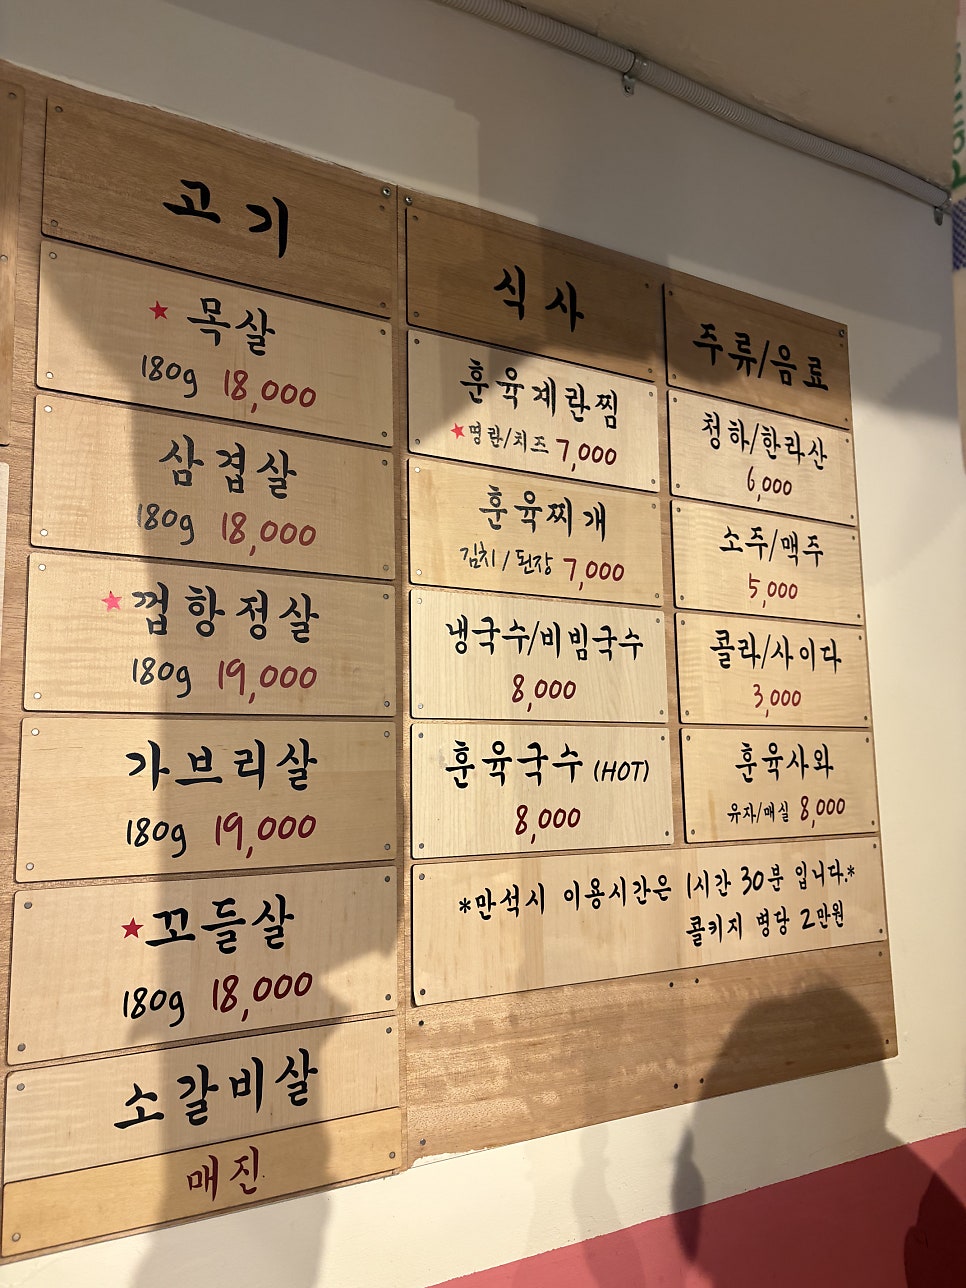 고기
★목살
180g 18,000
삼겹살
180g 18,000
★껍항정살
180g 19,000
가브리살
180g 19,000
★꼬들살
180g 18,000
소갈비살
매진
식사
훈육계란찜
★명란/치즈 7,000
훈육찌개
김치/된장 7,000
냉국수/비빔국수
8,000
훈육국수 (HOT)
8,000
주류/음료
청하/한라산
6,000
소주/맥주
5,000
콜라/사이다
3,000
훈육사와
유자/매실 8,000
*만석시 이용시간은 1시간 30분 입니다.*
콜키지 병당 2만원